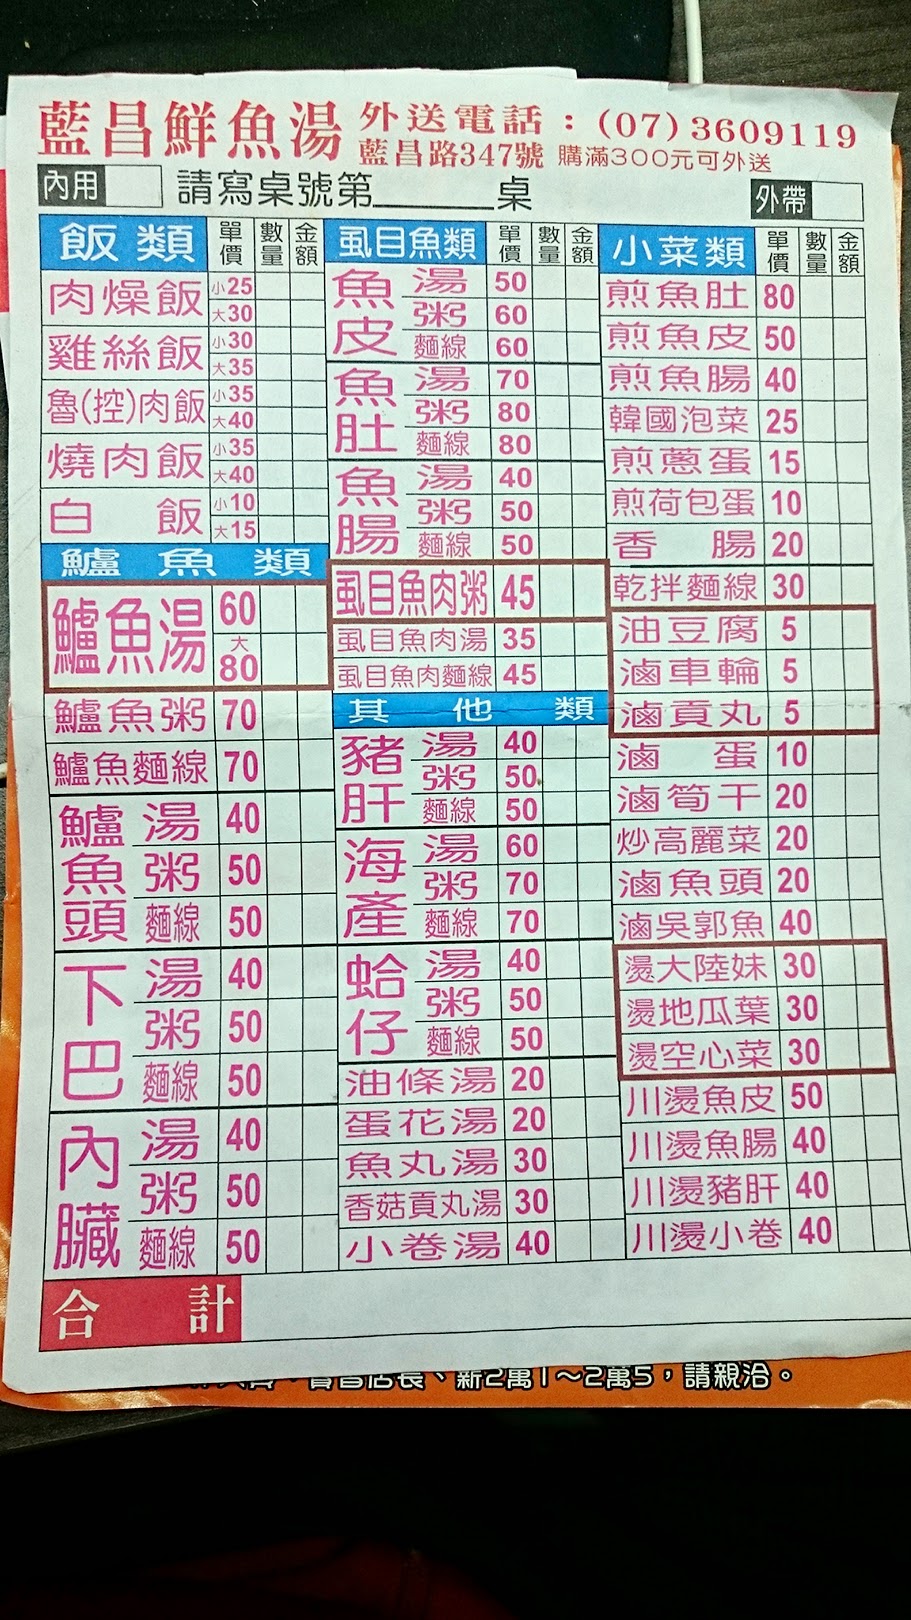 藍昌鮮魚湯 外送電話：(07)3609119
藍昌路347號 購滿300元可外送
內用 請寫桌號第______桌 外帶
飯類 單價 數量 金額
肉燥飯 小25
大30
雞絲飯 小30
大35
魯(控)肉飯 小35
大40
燒肉飯 小35
大40
白飯 小10
大15
鱸魚類
鱸魚湯 60
大80
鱸魚粥 70
鱸魚麵線 70
鱸魚頭 湯 40
粥 50
麵線 50
下巴 湯 40
粥 50
麵線 50
內臟 湯 40
粥 50
麵線 50
虱目魚類 單價 數量 金額
魚皮 湯 50
粥 60
麵線 60
魚肚 湯 70
粥 80
麵線 80
魚腸 湯 40
粥 50
麵線 50
虱目魚肉粥 45
虱目魚肉湯 35
虱目魚肉麵線 45
其他類
豬肝 湯 40
粥 50
麵線 50
海產 湯 60
粥 70
麵線 70
蛤仔 湯 40
粥 50
麵線 50
油條湯 20
蛋花湯 20
魚丸湯 30
香菇貢丸湯 30
小卷湯 40
小菜類 單價 數量 金額
煎魚肚 80
煎魚皮 50
煎魚腸 40
韓國泡菜 25
煎蔥蛋 15
煎荷包蛋 10
香腸 20
乾拌麵線 30
油豆腐 5
滷車輪 5
滷貢丸 5
滷蛋 10
滷筍干 20
炒高麗菜 20
滷魚頭 20
滷吳郭魚 40
燙大陸妹 30
燙地瓜葉 30
燙空心菜 30
川燙魚皮 50
川燙魚腸 40
川燙豬肝 40
川燙小卷 40
合計
店長、薪2萬1～2萬5，請親洽。